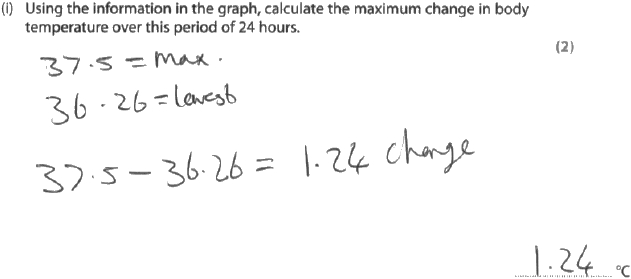 (i) Using the information in the graph, calculate the maximum change in body
temperature over this period of 24 hours.
(2)
37.5 = max.
36.26 = lowest
37.5 - 36.26 = 1.24 change
1.24 °C